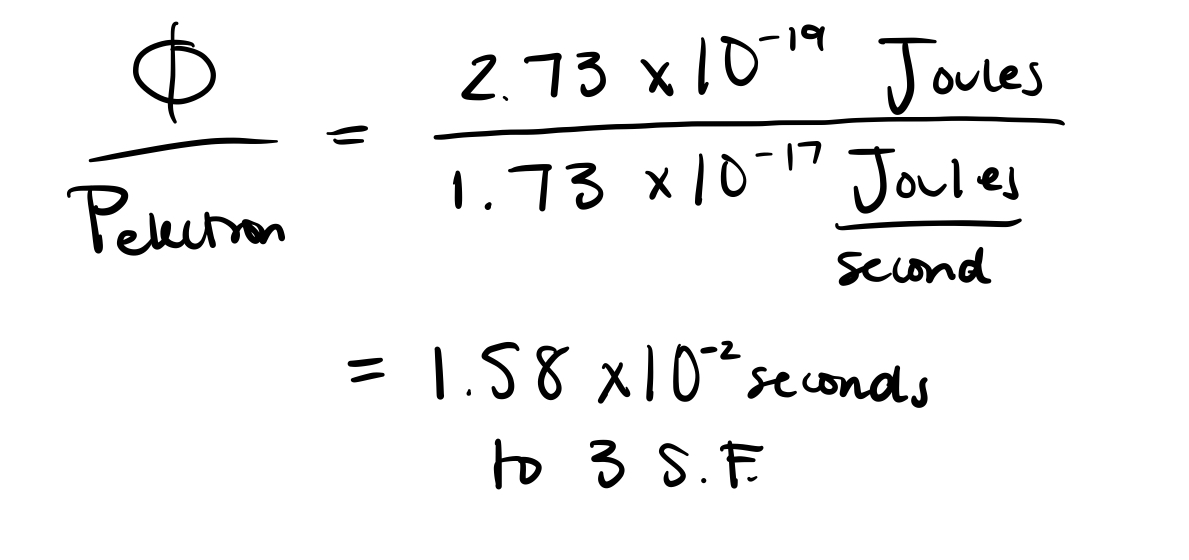 Φ / Pelectron = 2.73 × 10⁻¹⁹ Joules / 1.73 × 10⁻¹⁷ Joules/second
= 1.58 × 10⁻² seconds
to 3 S.F.